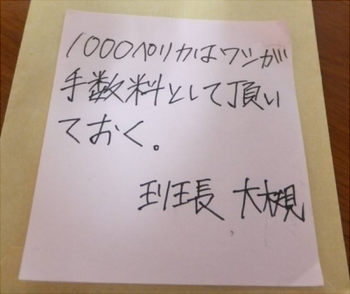 1000ペリカはワシが
手数料として頂い
ておく。
班長 大槻